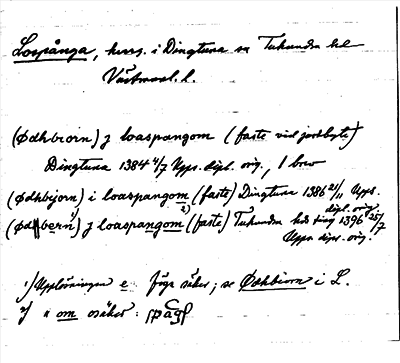 Lospånga, herrg. i Dingtuna sn Tuhundra hd
Västmanl. l.
(Ødhbiorn) j loaspangom (faste vid jordbyte)
Dingtuna 1384 4/7 Upps. dipl. orig., 1 brev
(ødhbijorn) i loaspangom (faste) Dingtuna 1386 21/11 Upps. dipl. orig.
(ødhbern) 1) j loaspangom 2) (faste) Tuhundra hds ting 1396 25/7
Upps. dipl. orig.
1) Upplösningen e föga säker; se Ødhbiorn i L.
2) om osäker: